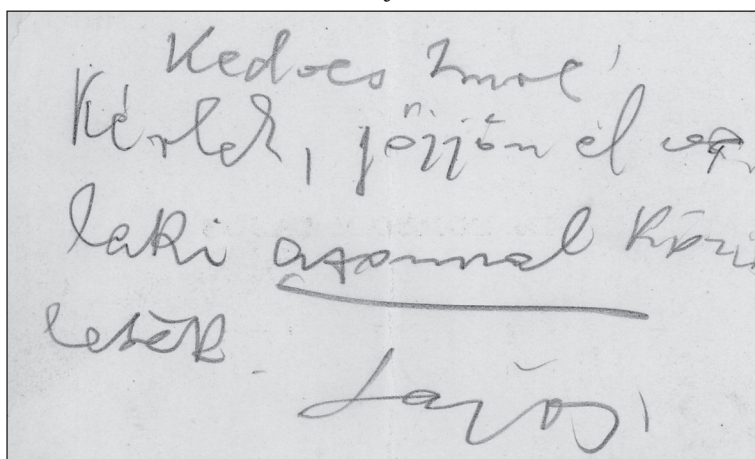 Kedves Imre!
Kérlek, jöjjön el va-
laki azonnal közü
letek.
Lajos